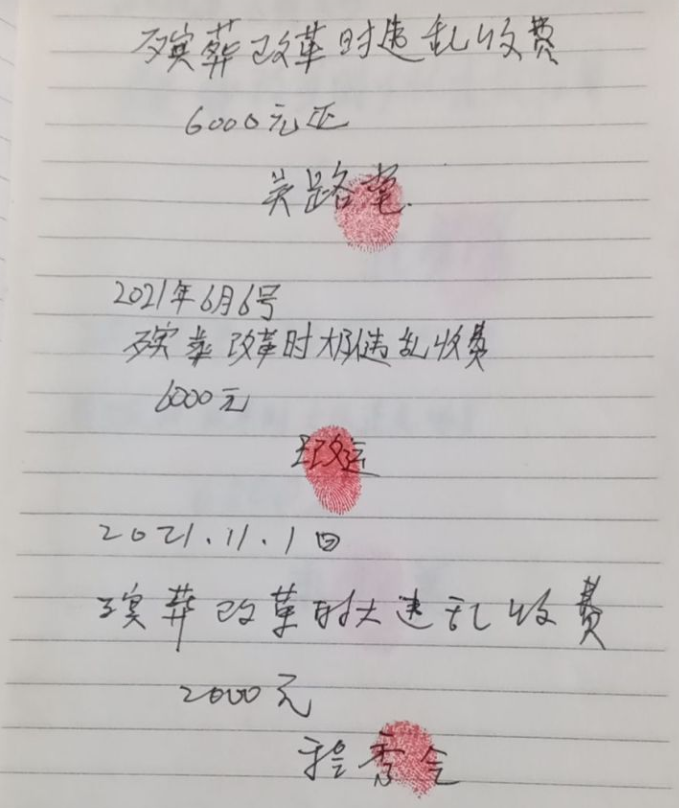 殡葬改革时违乱收费
6000元正
吴路
2021年6月6号
殡葬改革时大队违乱收费
6000元
2021.11.1日
殡葬改革时大违乱收费
2000元
程秀金